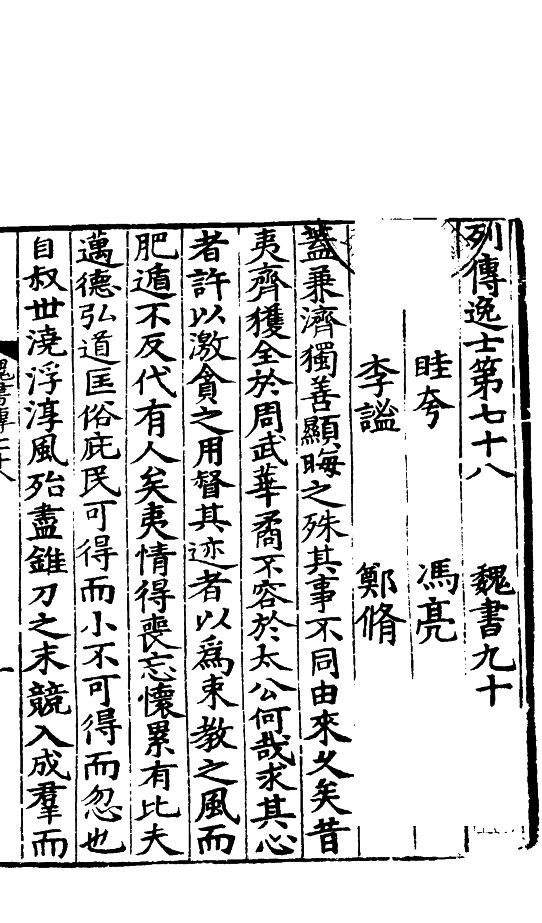 列傳逸士第七十八 魏書九十
眭夸 馮亮
李謐 鄭脩
蓋兼濟獨善顯晦之殊其事不同由來久矣昔
夷齊獲全於周武華矞不容於太公何哉求其心
者許以激貪之用督其迹者以爲束教之風而
肥遁不反代有人矣夷情得喪忘懷累有比夫
邁德弘道匡俗庇民可得而小不可得而忽也
自叔世澆浮淳風殆盡錐刀之末競入成羣而